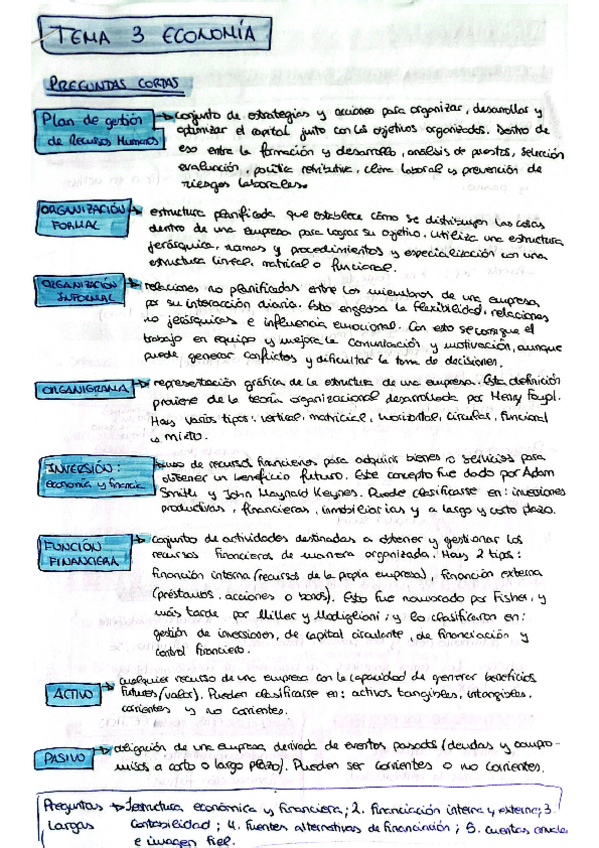 TEMA 3 ECONOMÍA
PREGUNTAS CORTAS
Plan de gestión de Recursos Humanos → conjunto de estrategias y acciones para organizar, desarrollar y
optimizar el capital junto con los objetivos organizados. Dentro de
eso entra la formación y desarrollo, analisis de puestos, selección
evaluación, política retributiva, clima laboral y prevención de
riesgos laborales.
ORGANIZACIÓN FORMAL → estructura planificada que establece cómo se distribuyen las cosas
dentro de una empresa para lograr su objetivo. Utiliza una estructura
jerárquica, normas y procedimientos y especialización con una
estructura lineal, matricial o funcional.
ORGANIZACIÓN INFORMAL → relaciones no planificadas entre los miembros de una empresa,
por su interacción diaria. Esto engloba la flexibilidad, relaciones
no jerárquicas e influencia emocional. Con esto se consigue el
trabajo en equipo y mejora la comunicación y motivación, aunque
puede generar conflictos y dificultar la toma de decisiones.
ORGANIGRAMA → representación gráfica de la estructura de una empresa. Esta definición
proviene de la teoría organizacional desarrollada por Henry Fayol.
Hay varios tipos: vertical, matricial, horizontal, circular, funcional
y mixto.
INVERSIÓN: economía y financia → uso de recursos financieros para adquirir bienes o servicios para
obtener un beneficio futuro. Este concepto fue dado por Adam
Smith y John Maynard Keynes. Puede clasificarse en: inversiones
productivas, financieras, inmobiliarias y a largo y corto plazo.
FUNCIÓN FINANCIERA → conjunto de actividades destinadas a obtener y gestionar los
recursos financieros de manera organizada. Hay 2 tipos:
financión interna (recursos de la propia empresa), financión externa
(préstamos, acciones o bonos). Esto fue nombrado por Fisher, y
más tarde por Miller y Modiglioni; y lo clasificaron en:
gestión de inversiones, de capital circulante, de financiación y
control financiero.
ACTIVO → cualquier recurso de una empresa con la capacidad de generar beneficios
futuros (valor). Pueden clasificarse en: activos tangibles, intangibles,
corrientes y no corrientes.
PASIVO → obligación de una empresa derivada de eventos pasados (deudas y compro-
misos a corto o largo plazo). Pueden ser corrientes o no corrientes.
Preguntas Largas → 1. estructura económica y financiera; 2. Financiación interna y externa; 3.
Contabilidad; 4. Fuentes alternativas de financiación; 5. cuentas
e imagen fiel.